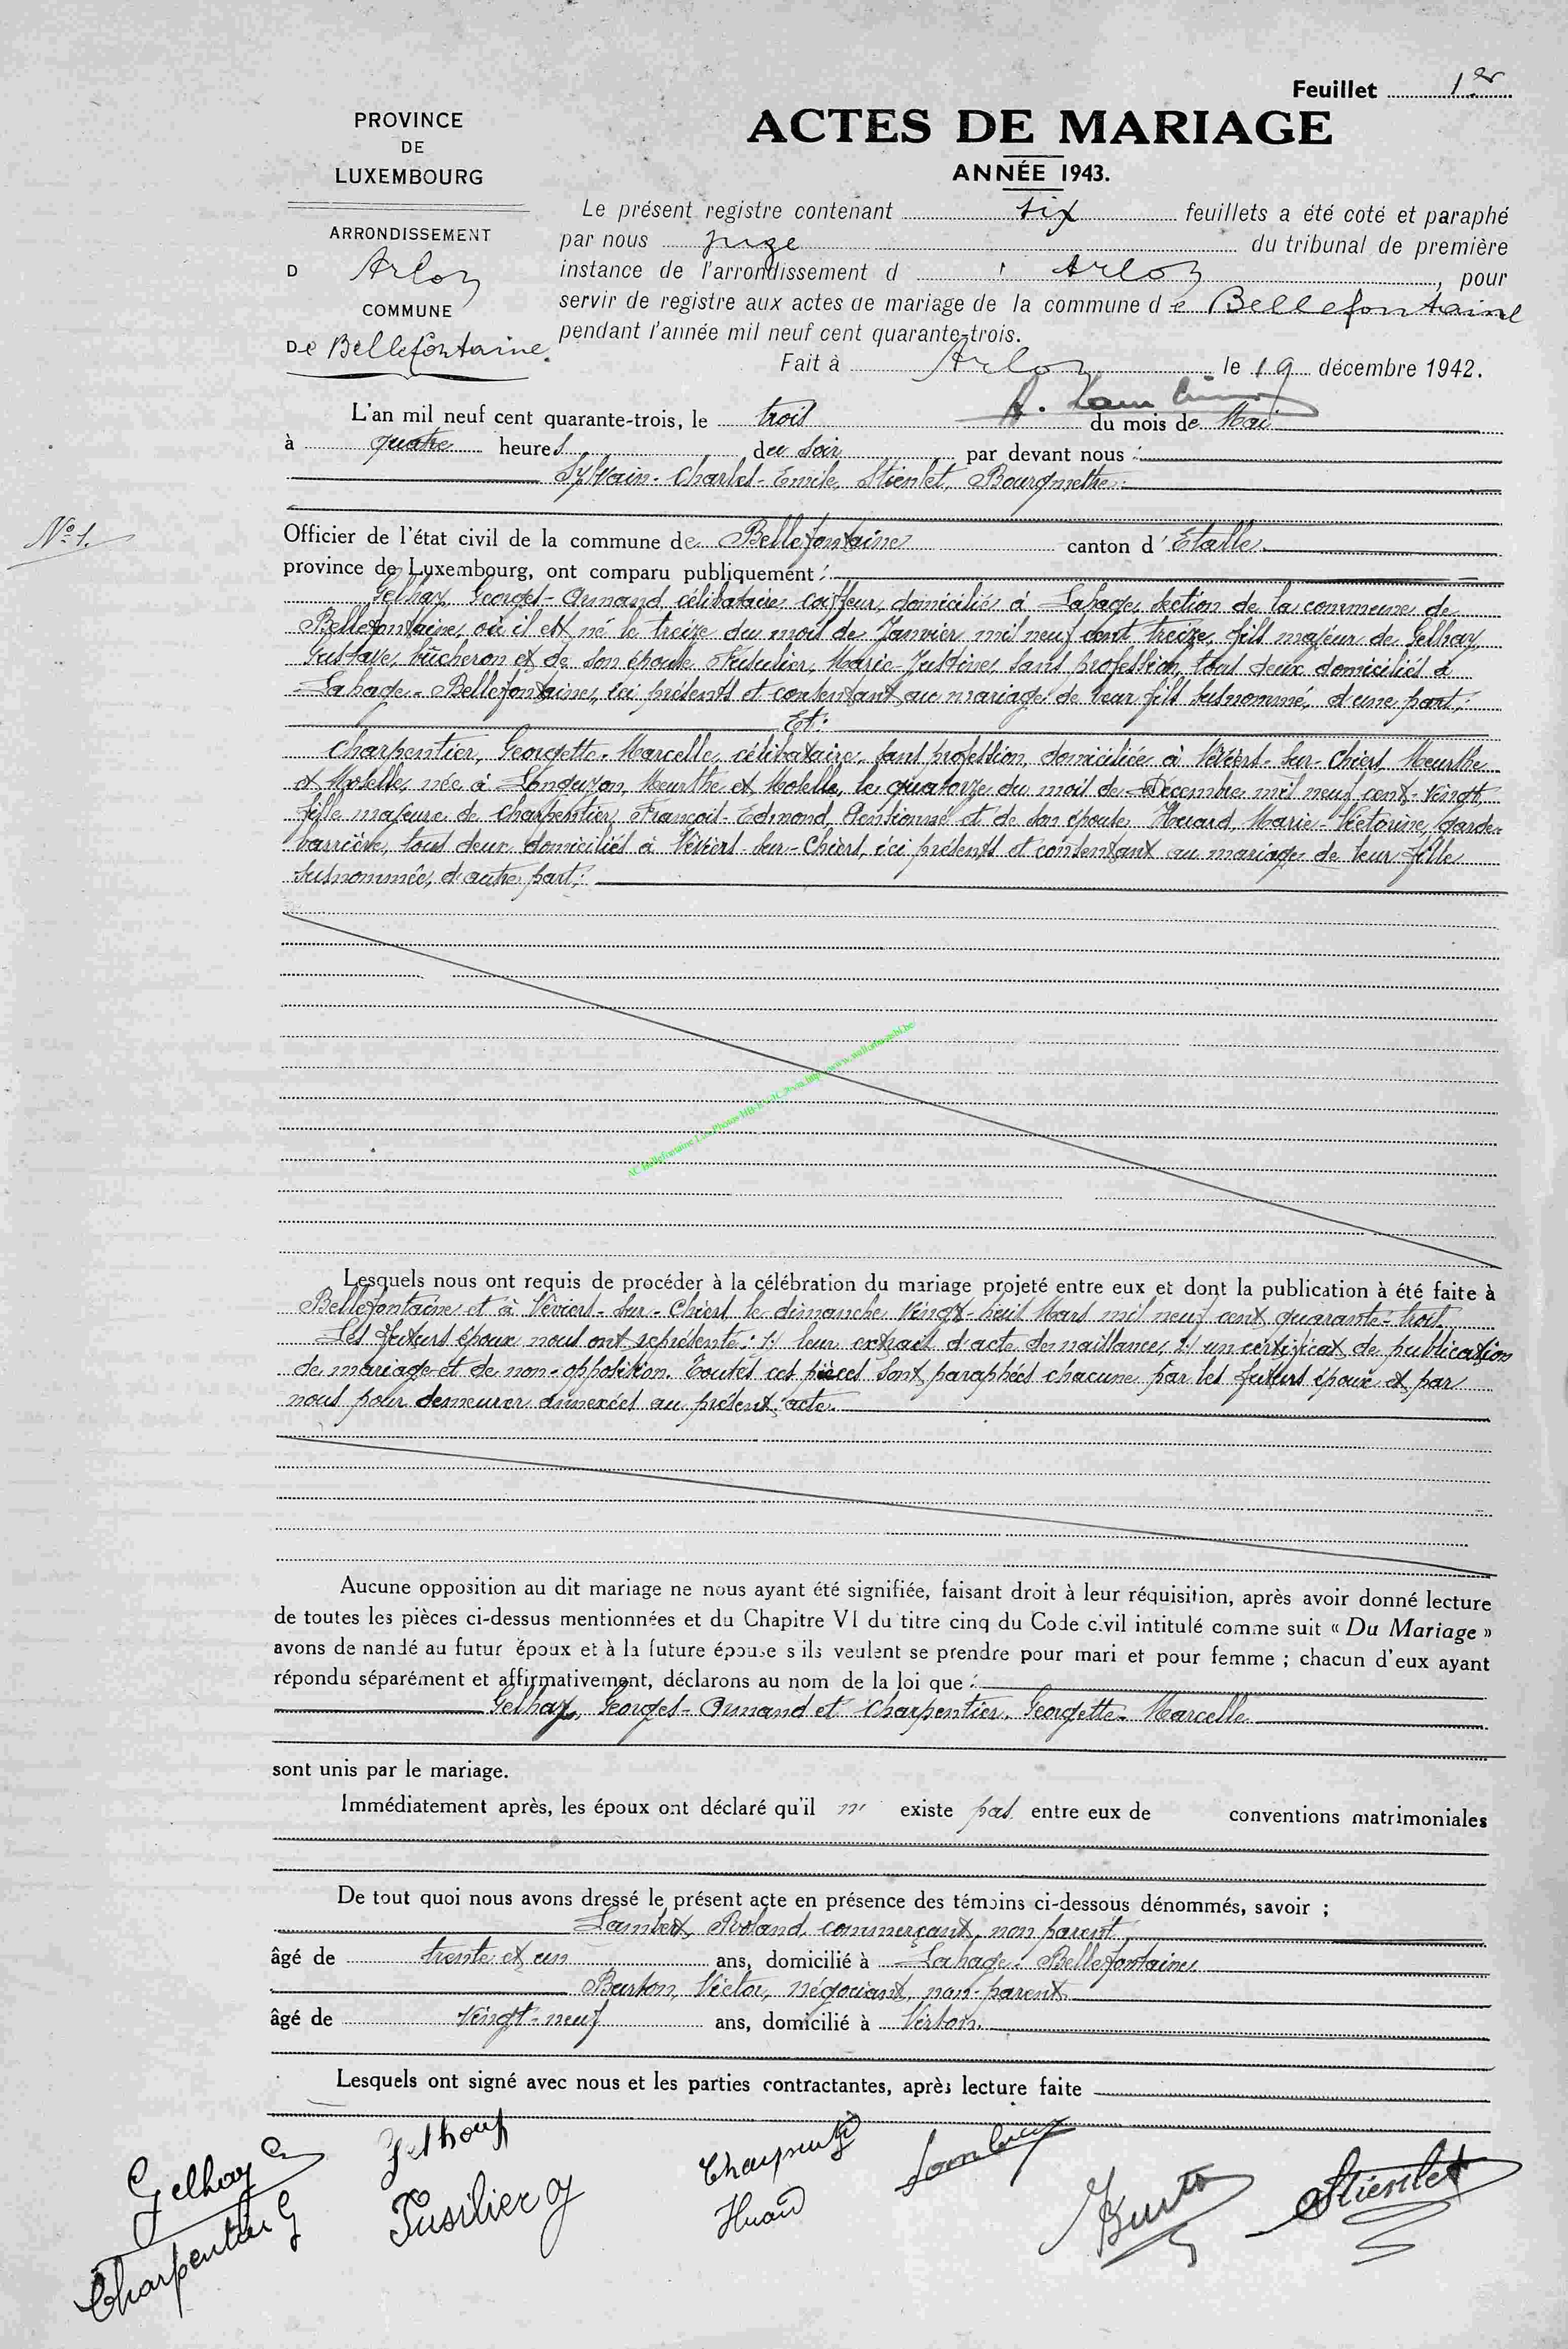 Feuillet 1er
PROVINCE
DE
LUXEMBOURG
ARRONDISSEMENT
D Arlon
COMMUNE
De Bellefontaine.
ACTES DE MARIAGE
ANNÉE 1943.
Le présent registre contenant six feuillets a été coté et paraphé
par nous juge du tribunal de première
instance de l'arrondissement d ' Arlon, pour
servir de registre aux actes de mariage de la commune de Bellefontaine
pendant l'année mil neuf cent quarante-trois.
Fait à Arlon le 19 décembre 1942.
L'an mil neuf cent quarante-trois, le trois du mois de Mai
à quatre heures du soir par devant nous :
Sylvain-Charles-Emile, Stienlet, Bourgmestre.
N° 1.
Officier de l'état civil de la commune de Bellefontaine canton d'Etalle
province de Luxembourg, ont comparu publiquement :
Gelhay, Georges-Armand, célibataire, coiffeur, domicilié à Lahage, section de la commune de
Bellefontaine, où il est né le treize du mois de Janvier mil neuf cent treize, fils majeur de Gelhay,
Gustave, bûcheron et de son épouse Fusulier, Marie-Justine, sans profession, tous deux domiciliés à
Lahage-Bellefontaine, ici présents et consentant au mariage de leur fils susnommé, d'une part;
Et:
Charpentier, Georgette-Marcelle, célibataire, sans profession, domiciliée à Viviers-sur-Chiers, Meurthe
et Moselle, née à Longuyon, Meurthe et Moselle, le quatorze du mois de Décembre mil neuf cent-vingt,
fille majeure de Charpentier, François-Edmond, Pensionné et de son épouse, Huard, Marie-Victorine, garde-
barrière, tous deux domiciliés à Viviers-sur-Chiers, ici présents et consentant au mariage de leur fille
susnommée, d'autre part;
Lesquels nous ont requis de procéder à la célébration du mariage projeté entre eux et dont la publication à été faite à
Bellefontaine et à Viviers-sur-Chiers, le dimanche vingt-huit Mars mil neuf cent quarante-trois.
Les futurs époux nous ont représenté: 1/ leur extrait d'acte de naissance, 2/ un certificat de publication
de mariage et de non-opposition. Toutes ces pièces sont paraphées chacune par les futurs époux et par
nous pour demeurer annexées au présent acte.
Aucune opposition au dit mariage ne nous ayant été signifiée, faisant droit à leur réquisition, après avoir donné lecture
de toutes les pièces ci-dessus mentionnées et du Chapitre VI du titre cinq du Code civil intitulé comme suit « Du Mariage »
avons demandé au futur époux et à la future épouse s'ils veulent se prendre pour mari et pour femme ; chacun d'eux ayant
répondu séparément et affirmativement, déclarons au nom de la loi que :
Gelhay, Georges-Armand et Charpentier, Georgette-Marcelle
sont unis par le mariage.
Immédiatement après, les époux ont déclaré qu'il n' existe pas entre eux de conventions matrimoniales
De tout quoi nous avons dressé le présent acte en présence des témoins ci-dessous dénommés, savoir ;
Lambert, Roland, commerçant, non parent,
âgé de trente et un ans, domicilié à Lahage-Bellefontaine
Burton, Victor, négociant, non-parent
âgé de vingt-neuf ans, domicilié à Virton.
Lesquels ont signé avec nous et les parties contractantes, après lecture faite
Gelhay G
Gelhay
Charpentier
Lambert
Burton
Stienlet
Charpentier G
Fusilier J
Huard